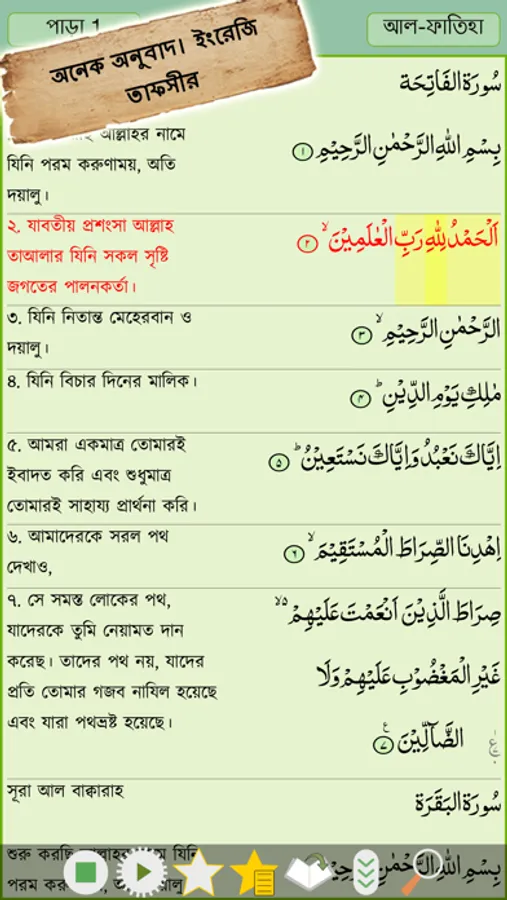 পাড়া 1
আল-ফাতিহা
অনেক অনুবাদ। ইংরেজি
তাফসীর
سُورَةُ الفَاتِحَة
আল্লাহর নামে
যিনি পরম করুণাময়, অতি
দয়ালু।
بِسْمِ اللّٰهِ الرَّحْمٰنِ الرَّحِيْمِ ۝١
২. যাবতীয় প্রশংসা আল্লাহ
তাআলার যিনি সকল সৃষ্টি
জগতের পালনকর্তা।
اَلْحَمْدُ لِلّٰهِ رَبِّ الْعٰلَمِيْنَ ۙ ۝٢
৩. যিনি নিতান্ত মেহেরবান ও
দয়ালু।
الرَّحْمٰنِ الرَّحِيْمِ ۙ ۝٣
৪. যিনি বিচার দিনের মালিক।
مٰلِكِ يَوْمِ الدِّيْنِ ؕ ۝٤
৫. আমরা একমাত্র তোমারই
ইবাদত করি এবং শুধুমাত্র
তোমারই সাহায্য প্রার্থনা করি।
اِيَّاكَ نَعْبُدُ وَاِيَّاكَ نَسْتَعِيْنُ ؕ ۝٥
৬. আমাদেরকে সরল পথ
দেখাও,
اِهْدِنَا الصِّرَاطَ الْمُسْتَقِيْمَ ۙ ۝٦
৭. সে সমস্ত লোকের পথ,
যাদেরকে তুমি নেয়ামত দান
করেছ। তাদের পথ নয়, যাদের
প্রতি তোমার গজব নাযিল হয়েছে
এবং যারা পথভ্রষ্ট হয়েছে।
صِرَاطَ الَّذِيْنَ اَنْعَمْتَ عَلَيْهِمْ ۙ۬
غَيْرِ الْمَغْضُوْبِ عَلَيْهِمْ وَلَا
الضَّآلِّيْنَ ۝٧
সূরা আল বাক্বারাহ
سُورَةُ البَقَرَة
শুরু করছি আল্লাহর নামে যিনি
পরম
بِسْمِ اللّٰهِ الرَّحْمٰنِ